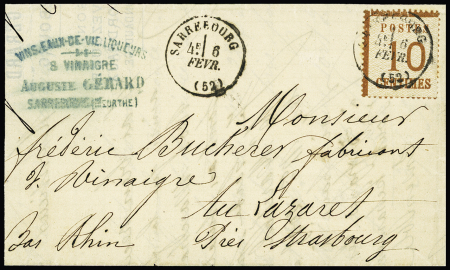 VINS, EAUX-DE-VIE, LIQUEURS
& VINAIGRE
AUGUSTE GÉRARD
SARREBOURG (MEURTHE)
SARREBOURG
4E 6
FÉVR.
(52)
POSTES
10
CENTIMES
4E 6
FÉVR.
(52)
Monsieur
frédéric Bucherer fabricant
de Vinaigre
Au Lazaret
Bas Rhin Près Strasbourg